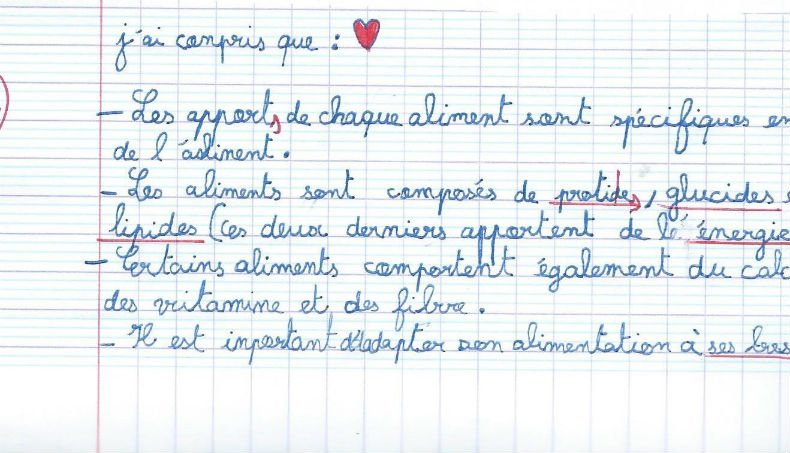 j'ai compris que :
- Les apports de chaque aliment sont spécifiques en
de l'
- Les aliments sont composés de protides, glucides
lipides (ces deux derniers apportent de l'énergie
- Certains aliments comportent également du calc
des vitamine et des fibre.
- Il est inportant d'adapter son alimentation à ses bes